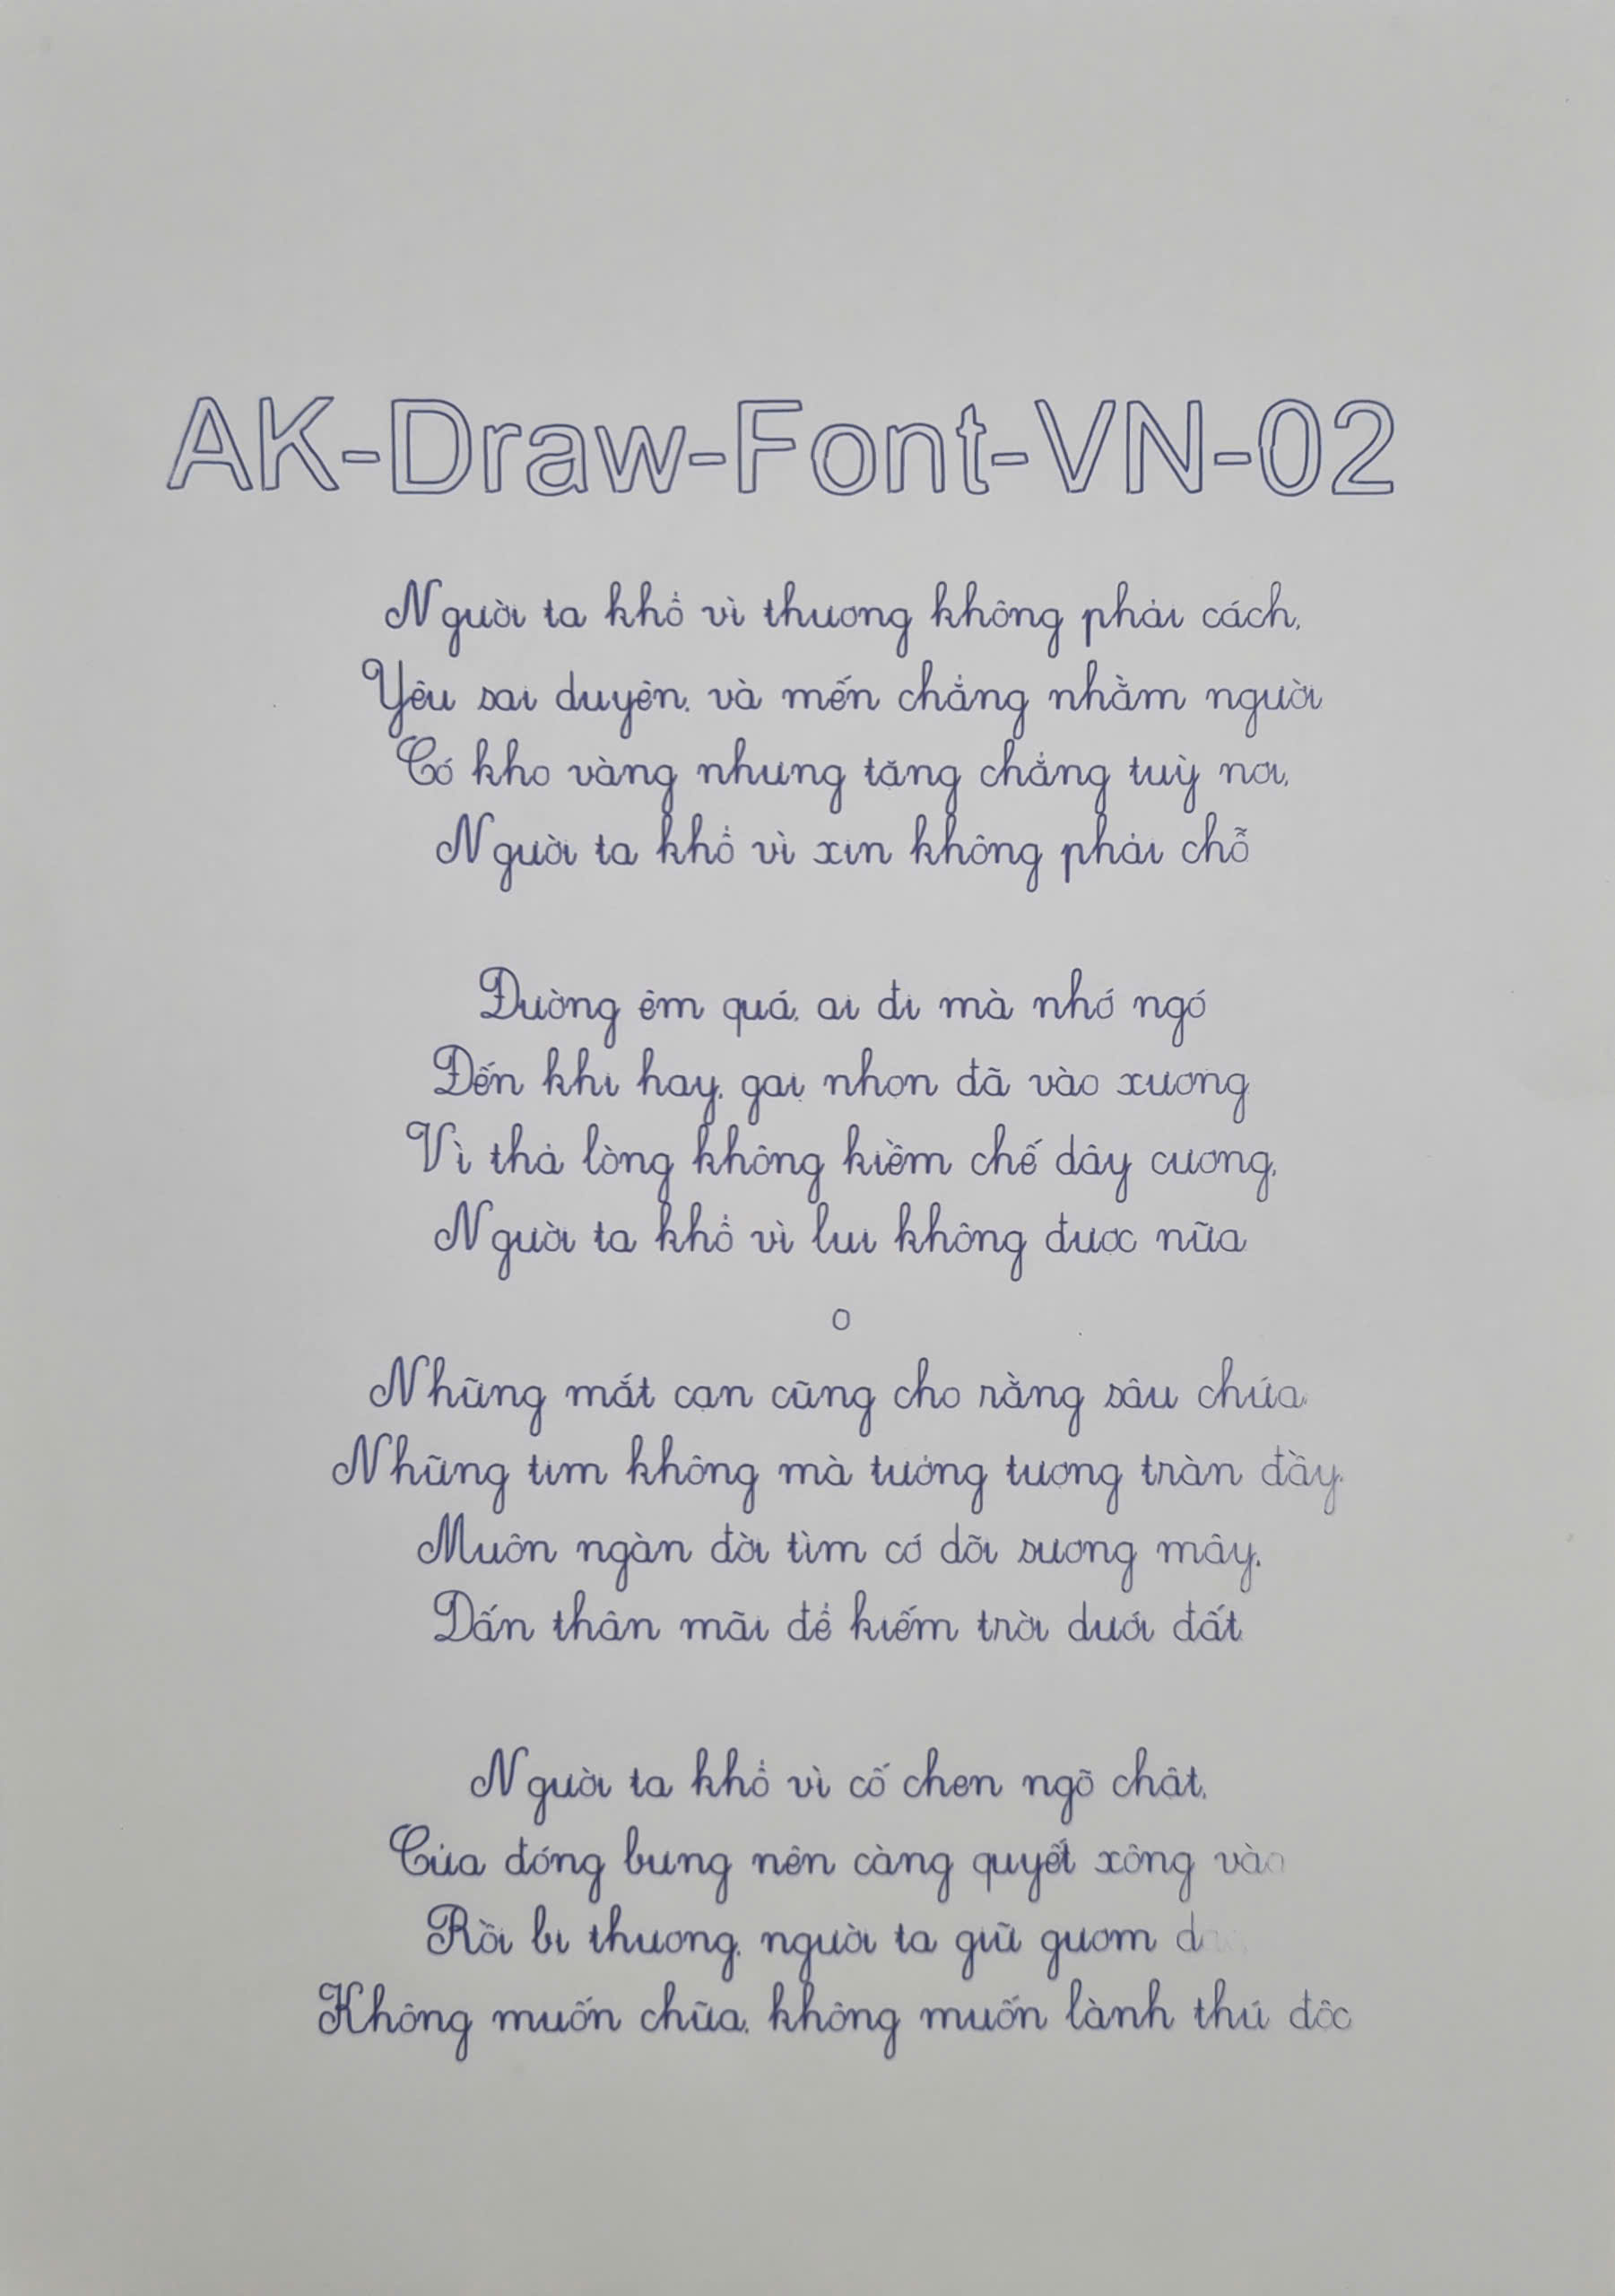 AK-Draw-Font-VN-02
Người ta khổ vì thương không phải cách,
Yêu sai duyên, và mến chẳng nhằm người
Có kho vàng nhưng tặng chẳng tuỳ nơi,
Người ta khổ vì xin không phải chỗ
Đường êm quá, ai đi mà nhớ ngó
Đến khi hay, gai nhọn đã vào xương
Vì thả lòng không kiềm chế dây cương,
Người ta khổ vì lui không được nữa
o
Những mắt cạn cũng cho rằng sâu chứa
Những tim không mà tưởng tượng tràn đầy
Muôn ngàn đời tìm cớ dõi sương mây,
Dấn thân mãi để kiếm trời dưới đất
Người ta khổ vì cố chen ngõ chật,
Cửa đóng bưng nên càng quyết xông vào
Rồi bị thương, người ta giữ gươm
Không muốn chữa, không muốn lành thú độc